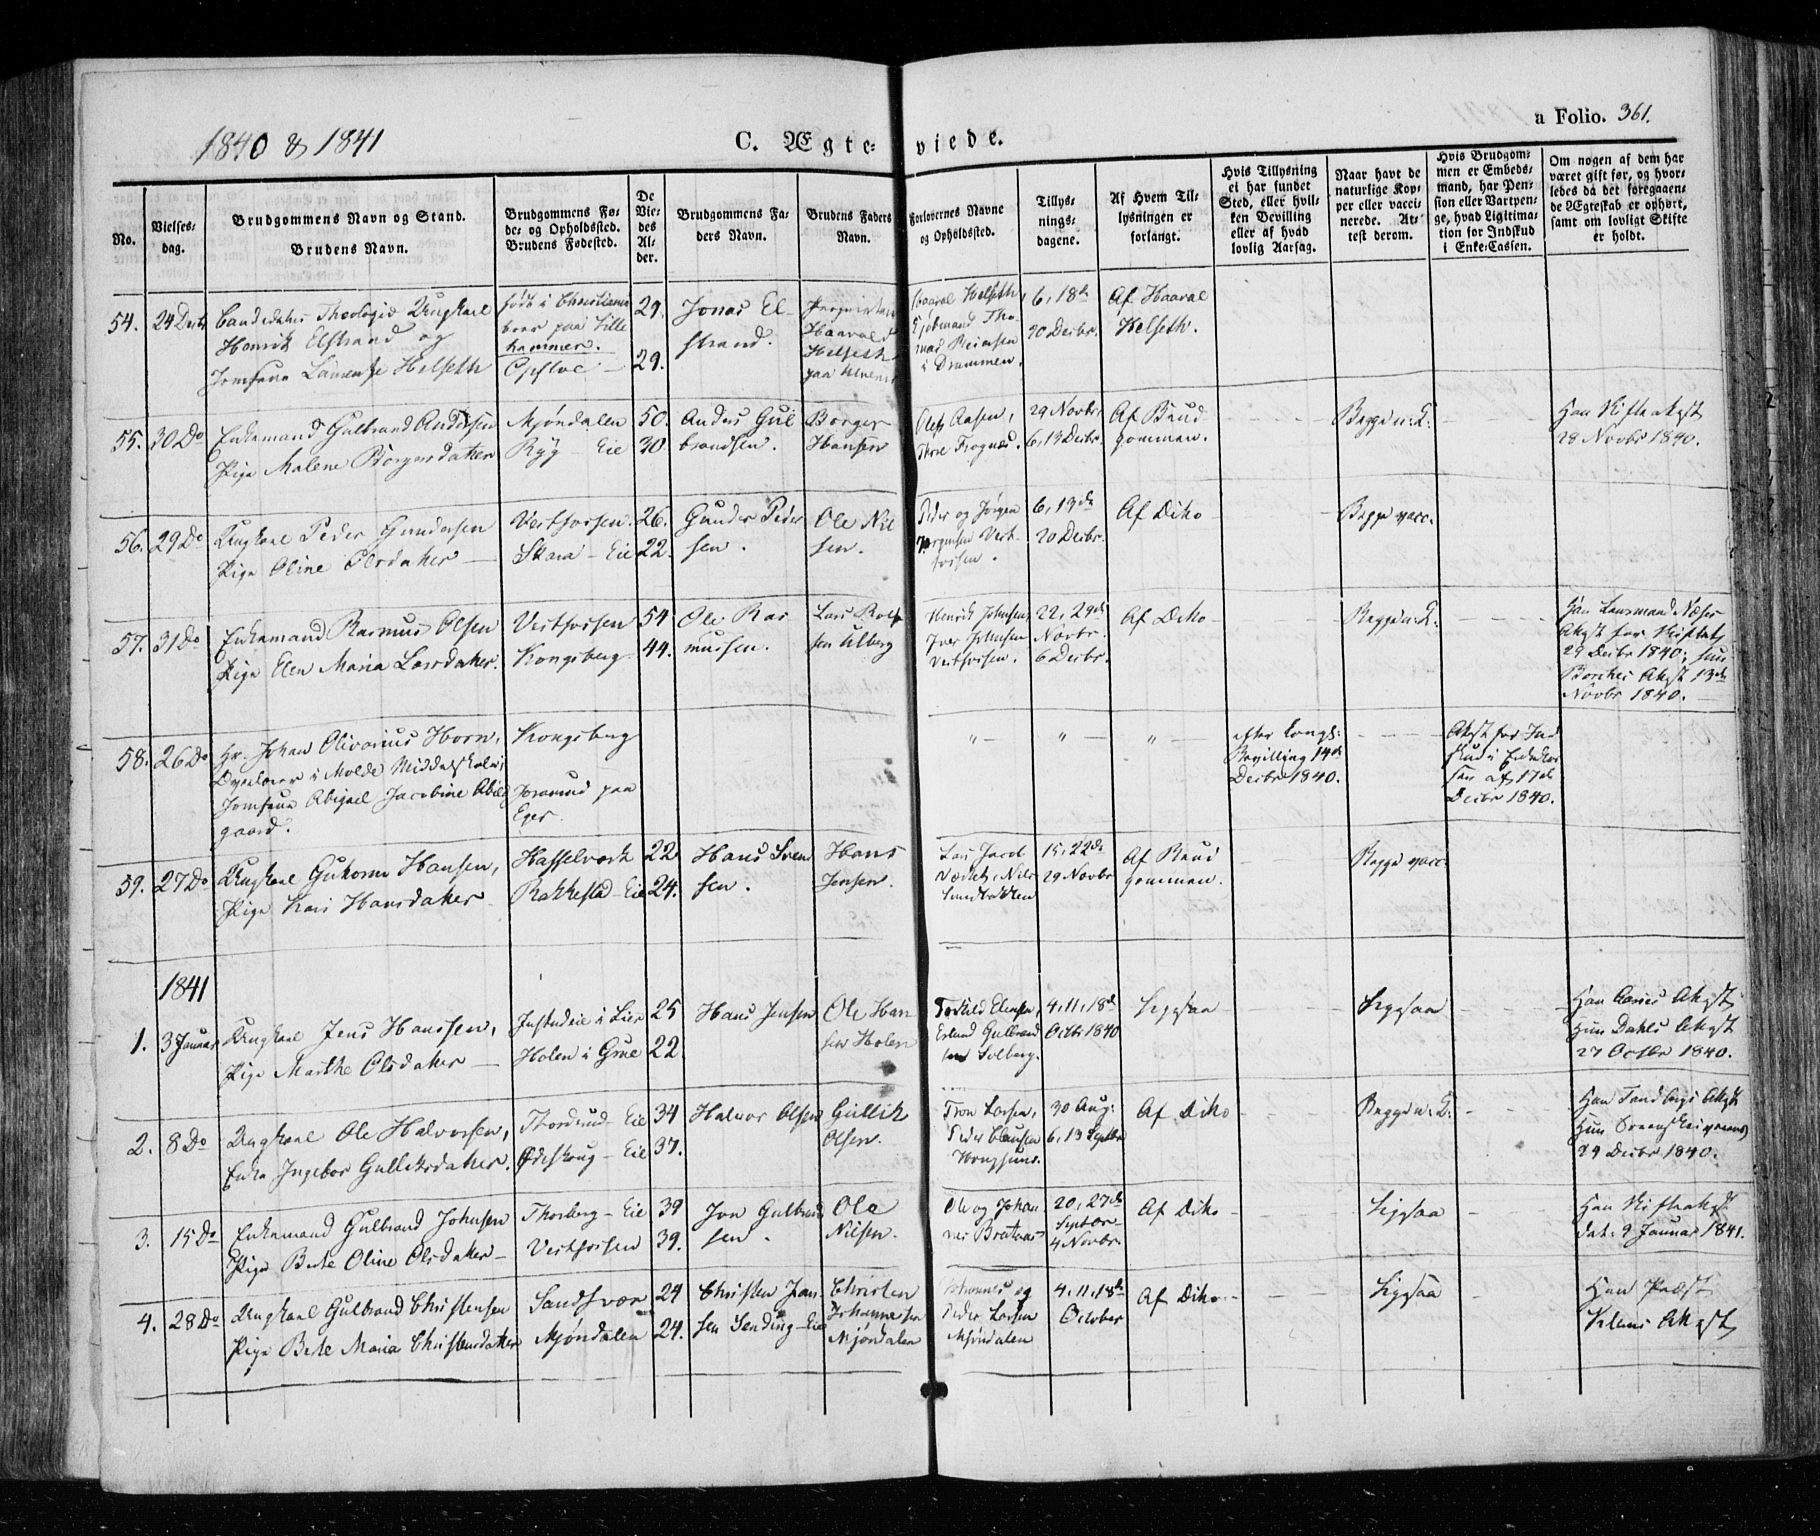 1840 & 1841
C. Ægte-
viede.
a Folio. 361.
No.
Vielses-
dag.
Brudgommens Navn og Stand.
Brudens Navn.
Brudgommens Fø-
de- og Opholdsted.
Brudens Fødested.
De
Vie-
des
Al-
der.
Brudgommens Fa-
ders Navn.
Brudens Faders
Navn.
Forlovernes Navne
og Opholdsted.
Tillys-
nings-
dagene.
Af Hvem Til-
lysningen er
forlangt.
Hvis Tillysning
ei har fundet
Sted, eller hvil-
ken Bevilling
eller af hvad
lovlig Aarsag.
Naar havt de
naturlige Kop-
per eller vacci-
nerede. At-
test derom.
Hvis Brudgom-
men er Embeds-
mand, har Pen-
sion eller Vartpen-
ge, hvad Ligitima-
tion for Indskud
i Enke-Cassen.
Om nogen af dem har
været gift før, og hvor-
ledes da det foregaaen-
de Ægteskab er ophørt,
samt om lovligt Skifte
er holdt.
54.
24 Decbr
Candidatus Theologiæ Ungkarl
Henrik Elstrand og
Jomfrue Helseth
født i Christiania
boer paa Lille
hammer.
29.
29.
Jonas El-
strand.
Haavald
Helseth
paa
Haaval Helseth
Kjøbmand Tho-
mas
i Drammen.
6, 18de
20 Decbr.
Af Haaval
Helseth.
55.
30 Do
Enkemand Gulbrand Andersen
Pige Malene Borgersdatter
Mjøndalen
Ryg - Eie
50.
30
Anders Gul
brandsen.
Borger
Hansen
Ole Aasen,
Tore Frognes.
29 Novbr.
6, 13 Decbr.
Af Brud
gommen.
Begge n: K.
Han Skifteattest
28 Novbr 1840.
56.
29 Do
Ungkarl Peder Gundersen
Pige Oline Olsdatter
Vestfossen.
Skara - Eie
26.
22.
Gunder Peder
sen.
Ole Niel
sen.
Peder og Jørgen
Jørgensen Vest-
fossen.
6, 13de
20 Decbr.
Af Ditto
Begge vacc.
57.
31 Do
Enkemand Rasmus Olsen
Pige Elen Maria Larsdatter.
Vestfossen
Kongsberg
54
44.
Ole Ras
mussen.
Lars
sen Ulberg
Henrik Johnsen,
Iver Johnsen
Vestfossen.
22, 29de
Novbr.
6 Decbr.
Af Ditto
Begge n: K.
Han Lensmand Næser
Attest for Skiftet
29 Decbr 1840; hun
Attest 13de
Novbr 1840.
58.
26 Do
Hr. Johan Olivarius Horn,
Overlærer i Molde Middelskole;
Jomfrue Abigael Jacobine Abild
gaard.
Kongsberg
paa
Eger.
"
"
"
efter Kongl:
Bevilling 14de
Decbr 1840.
Attest for Ind
skud i Enkekas
sen af 17de
Decbr 1840.
59.
27 Do
Ungkarl Guttorm Hansen,
Pige Kari Hansdatter
Hasselverk
Rakkestad - Eie
22
24.
Hans Svend
sen.
Hans
Jensen.
Lars
Nils
15, 22de
29 Novbr
Af Brud
gommen.
Begge vacc.
1841
1.
3 Januar
Ungkarl Jens Hanssen,
Pige Marthe Olsdatter
i Lier
Holen i Grue
25
22.
Hans Jensen
Ole Han
sen Holen
Torkild Elensen,
Erland Gulbrand
sen Solberg.
4, 11, 18de
Octbr 1840
Ligesaa
Ligesaa
Han Attest
Hun Dahls Attest
27 Octbr 1840.
2.
8 Do
Ungkarl Ole Halvorsen,
Enke Ingebor Gulliksdatter.
Thorsrud - Eie
Ødeskoug - Eie
34
37.
Halvor Olsen
Gullik
Olsen.
Tron Larsen,
Peder Clausen
30 Aug:
6, 13 Septbr
Af Ditto
Begge n: K.
Han Sandbergs Attest
Hun
29 Decbr 1840.
3.
15 Do
Enkemand Gulbrand Johnsen
Pige Berte Oline Olsdatter
Thorberg - Eie
Vestfossen
39
39.
Jon Gulbrand
sen.
Ole
Nilsen.
Ole og Johan
nes
20, 27de
Septbr
4 Novbr.
Af Ditto
Ligesaa
Han Skifteattest
dat: 9 Januar 1841.
4.
28 Do
Ungkarl Gulbrand Christensen
Pige Berte Maria Christensdatter
Sandsvær
Mjøndalen
24
24.
Christen Jan-
sen Sending - Eie
Christen
Johannesen
Mjøndalen
Johannes og
Peder Larsen
Mjøndalen
4, 11, 18de
October
Af Ditto
Ligesaa
Han Præst
Attest